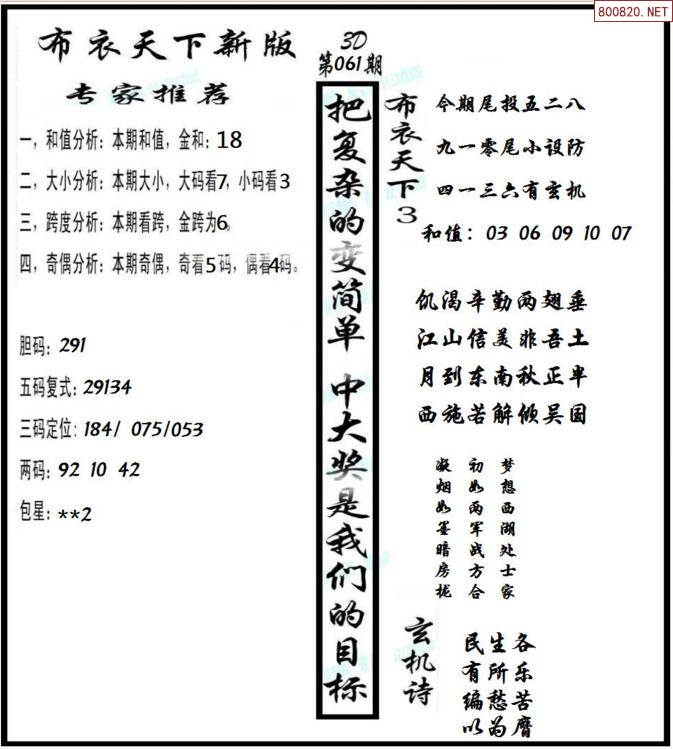 800820.NET
布衣天下新版
专家推荐
一，和值分析：本期和值，金和：18
二，大小分析：本期大小，大码看7，小码看3
三，跨度分析：本期看跨，金跨为6。
四，奇偶分析：本期奇偶，奇看5码，偶看4码。
胆码：291
五码复式：29134
三码定位：184/ 075/053
两码：92 10 42
包星：**2
3D
第061期
把复杂的变简单 中大奖是我们的目标
布衣天下3
今期尾投五二八
九一零尾小设防
四一三六有玄机
和值：03 06 09 10 07
饥渴辛勤两翅垂
江山信美非吾土
月到东南秋正半
西施苦解倾吴国
梦想西湖处士家
初如两军战方合
凝烟如墨暗房栊
玄机诗
各乐苦膺
生所愁为
民有编以